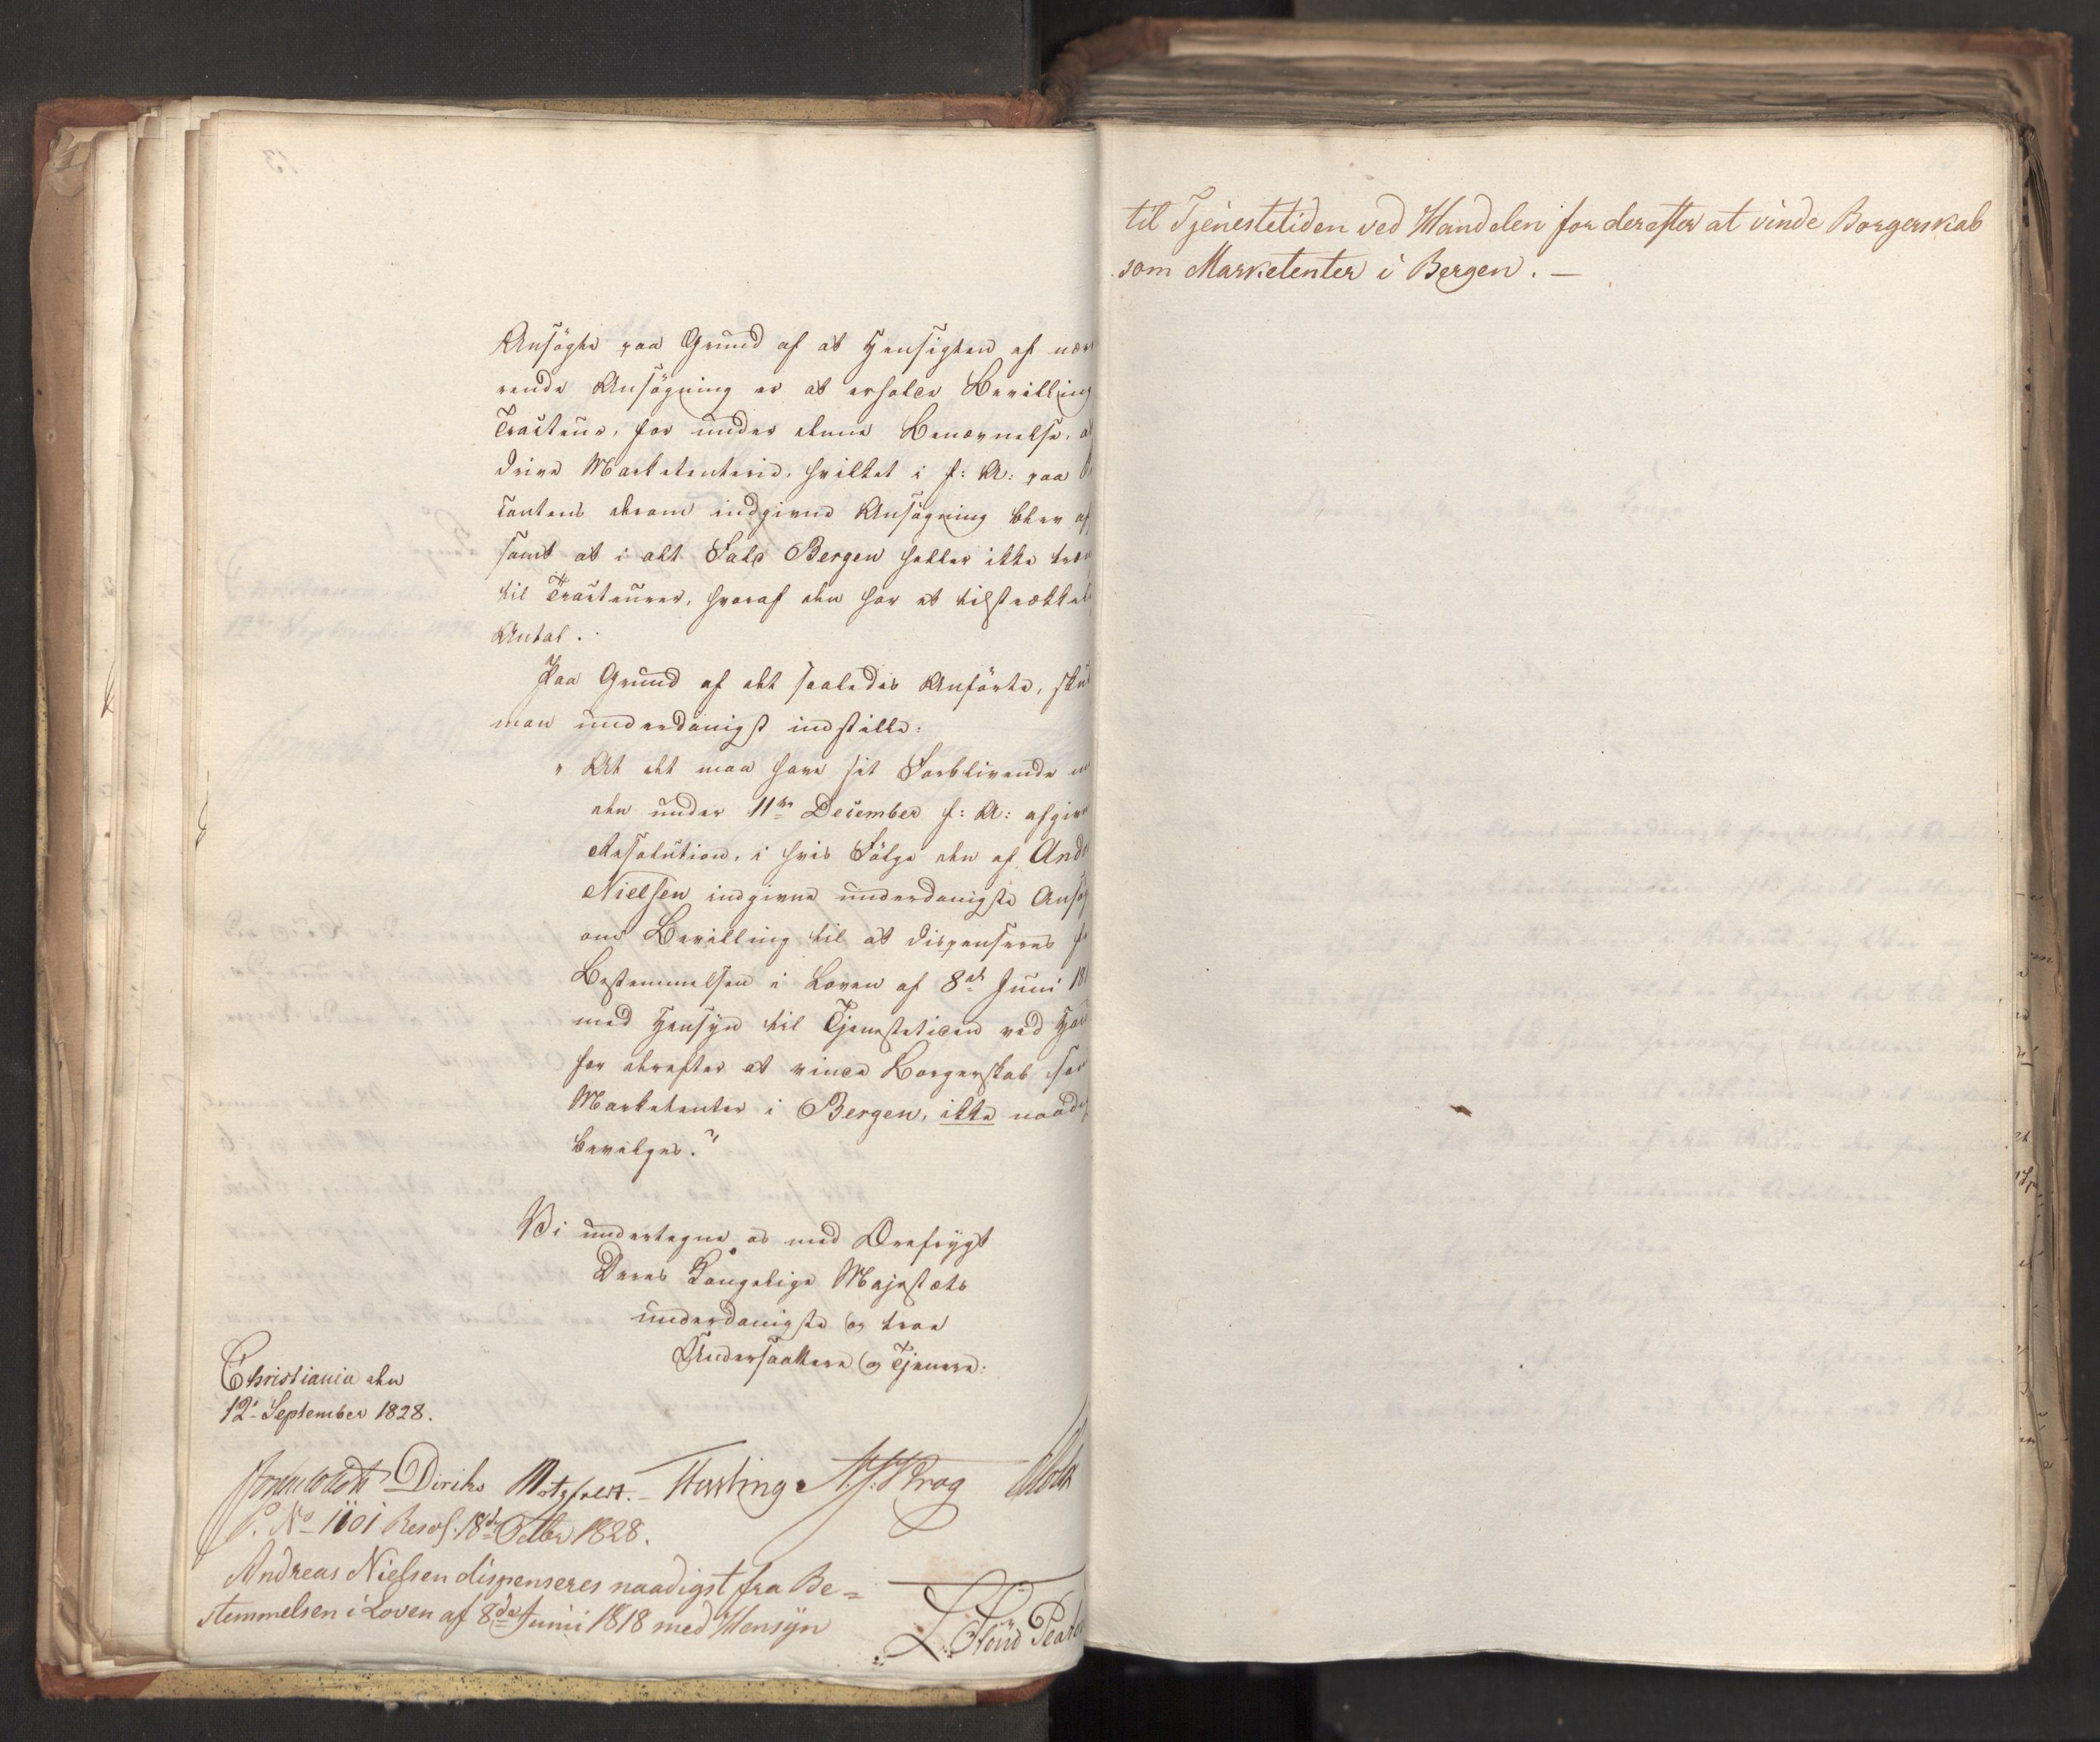 Ansøgte paa Grund af at Hensigten af nær
rende Ansøgning er at erholde Bevilling
Tracteur, for under denne Benævnelse, a
drive Marketenterie, hvilket i f: A: paa
cantens derom indgivne Ansøgning blev af
samt at i alt Fald Bergen heller ikke træn
til Tracteurer, hvoraf den har et tilstrækkel
Antal.
Paa Grund af det saaledes Anførte, skul
man underdanigst indstille:
"At det maa have sit Forblivende
den under 11te December f: A: afgivn
Resolution, i hvis Følge den af Andr
Nielsen indgivne underdanigste Ansøg
om Bevilling til at dispenseres f
Bestemmelsen i Loven af 8de Juni 181
med Hensyn til Tjenestetiden ved Han
for derefter at vinde Borgerskab som
Marketenter i Bergen, ikke naadig
bevilges."
Vi undertegne os med Ærefrygt
Deres Kongelige Majestæts
underdanigste og troe
Undersaattere og Tjenere.
Christiania den
12te September 1828.
Diriks Motzfeldt. Fasting N. J. Krog
P. No 1101 Resol: 18de Octbr 1828.
Andreas Nielsen dispenseres naadigst fra Be=
stemmelsen i Loven af 8de Junii 1818 med Hensyn
til Tjenestetiden ved Handelen for derefter at vinde Borgerskab
som Marketenter i Bergen. —